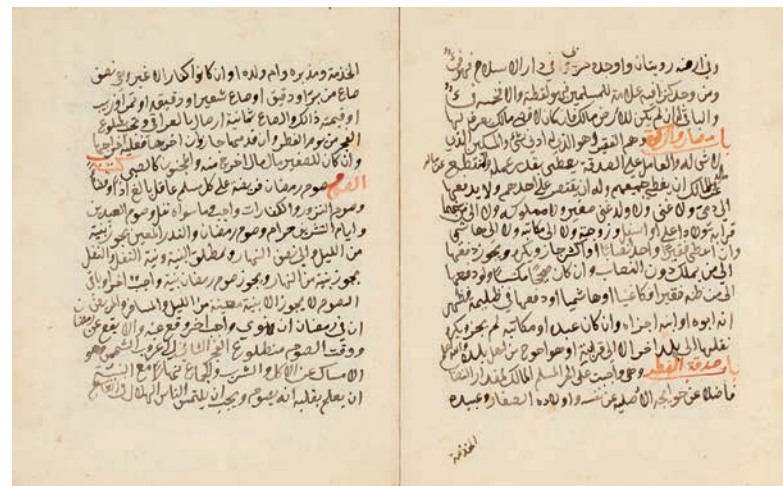 وفي ارضه روايتان ولو وجده حربي في دار الاسلام فهو فيء
ومن وجد كنزا فيه علامة للمسلمين فهو لقطة والا خمسه
والباقي له ان لم تكن الارض مالك فان كان لارض مالك معروف لها
باب مصارف الزكاة وهم الفقير وهو الذي له ادنى شيء والمسكين الذي
لا شيء له والعامل على الصدقة يعطى بقدر عمله والمنقطع عن ماله
للمالك ان يعطي جميعهم وله ان يقتصر على احدهم ولا يدفعها
الى ذمي ولا غني ولا ولد غني صغير ولا مملوكه ولا الى من بينهما
قرابة ولاد اعلى او اسفل وزوجة ولا الى مكاتبه ولا الى هاشمي
وان اعطى فقيرا واحدا نصابا او اكثر جاز ويكره ويجوز دفعها
الى من يملك دون النصاب وان كان صحيحا مكتسبا ولو دفعها
الى من ظنه فقيرا فكان غنيا او هاشميا او دفعها في ظلمة فظهر
انه ابوه او ابنه اجزاه وان كان عبده او مكاتبه لم يجز ويكره
نقلها الى بلد اخر الا الى قرابته او هو احوج من اهل بلده
باب صدقة الفطر وهي واجبة على الحر المسلم المالك لمقدار النصاب
فاضلا عن حوايجه الاصلية عن نفسه واولاده الصغار وعبيده
الخدمة
الخدمة ومدبره وام ولده وان كانوا كفارا لا غير وهي نصف
صاع من بر او دقيق او صاع شعير او دقيقه او تمر او زبيب
او قيمة ذلك والصاع ثمانية ارطال بالعراقي وتجب بطلوع
الفجر من يوم الفطر وان قدمها جاز وان اخرها فعليه اخراجها
وان كان للصغير مال اخرج منه والمجنون كالصبي كتاب
الصوم صوم رمضان فريضة على كل مسلم عاقل بالغ اداء وقضاء
وصوم النذور والكفارات واجب وما سواه نفل وصوم العيدين
وايام التشريق حرام وصوم رمضان والنذر المعين يجوز بنية
من الليل والى نصف النهار وبمطلق النية وبنية النفل والنفل
يجوز بنية من النهار ويجوز صوم رمضان بنية واجب اخر وباقي
الصوم لا يجوز الا بنية معينة من الليل والمسافر والمريض
ان نوى في رمضان واجبا اخر وقع عنه والا يقع عن رمضان
ووقت الصوم من طلوع الفجر الثاني الى غروب الشمس وهو
الامساك عن الاكل والشرب والجماع نهارا مع النية
ان يعلم بقلبه انه يصوم ويجب ان يلتمس الناس الهلال في